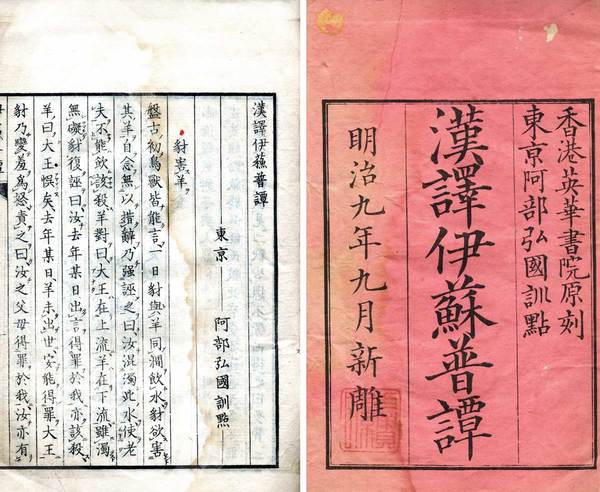 香港英華書院原刻
東京阿部弘國訓點
漢譯伊蘇普譚
明治九年九月新雕
漢譯伊蘇普譚
東京 阿部弘國訓點
豺害羊
盤古初鳥獸皆能言一日豺與羊同澗飲水豺欲害
其羊自念無以措辭乃强誣之曰汝混濁此水使老
夫不能飲該殺羊對曰大王在上流羊在下流雖濁
無礙豺復誣曰汝去年某日出言得罪於我亦該殺
羊曰大王悞矣去年某日羊未出世安能得罪大王
豺乃變羞為怒責之曰汝之父母得罪於我汝亦有